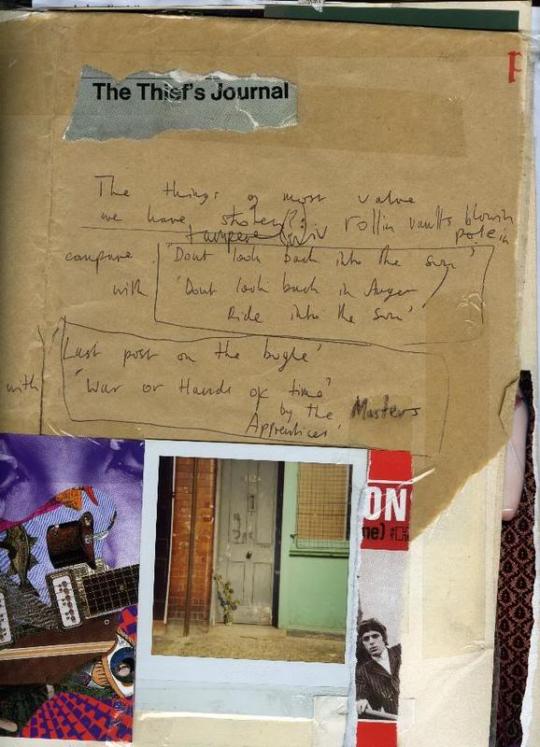 The Thief's Journal
The things of most value
we have stolen rollin vaults blowin
compare 'Dont look back into the sun'
with 'Dont look back in Anger
Ride into the Sun'
Last post on the bugle'
with 'War or Hands of time'
by the Masters
Apprentices'
ON
ne)